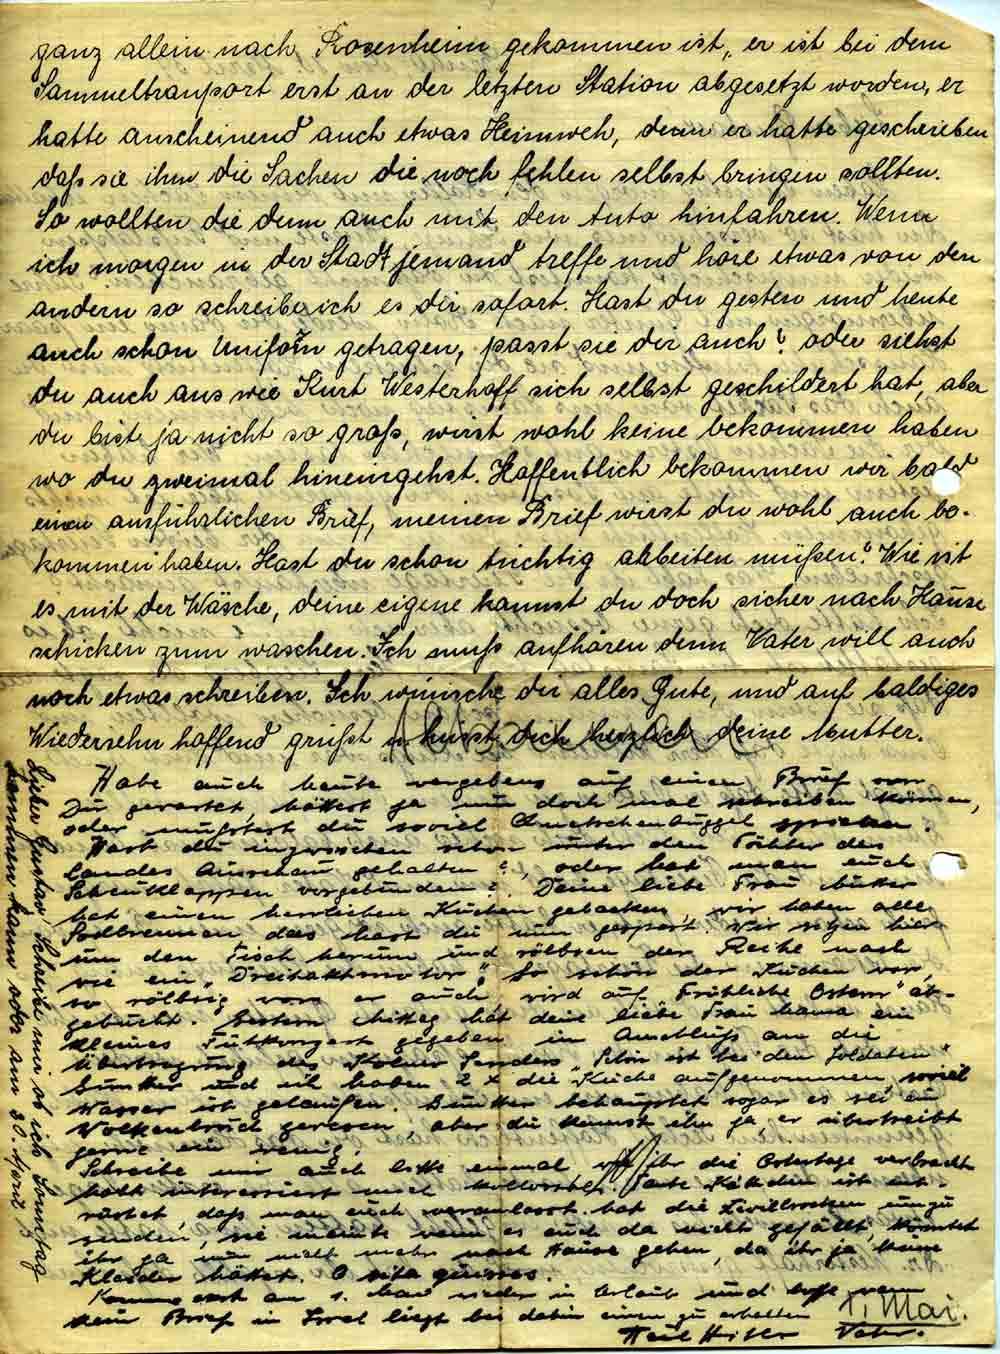 ganz allein nach Rosenheim gekommen ist, er ist bei dem
Sammeltransport erst an der letzten Station abgesetzt worden, er
hatte anscheinend auch etwas Heimweh, denn er hatte geschrieben
daß sie ihm die Sachen die noch fehlen selbst bringen sollten.
So wollten die denn auch mit den Auto hinfahren. Wenn
ich morgen in der Stadt jemand treffe und höre etwas von den
andern so schreibe ich es dir sofort. Hast du gestern und heute
auch schon Uniform getragen, passt sie dir auch? oder siehst
du auch aus wie Kurt Westerhoff sich selbst geschildert hat, aber
du bist ja nicht so groß, wirst wohl keine bekommen haben
wo du zweimal hineingehst. Hoffentlich bekommen wir bald
einen ausführlichen Brief, meinen Brief wirst du wohl auch be-
kommen haben. Hast du schon tüchtig arbeiten müßen? Wie ist
es mit der Wäsche, deine eigene kannst du doch sicher nach Hause
schicken zum waschen. Ich muß aufhören denn Vater will auch
noch etwas schreiben. Ich wünsche dir alles Gute, und auf baldiges
Wiedersehn hoffend grüßt u küsst dich herzlich deine Mutter.
Habe auch heute vergebens auf einen Brief von
Du gewartet, hättest ja nun doch mal schreiben können,
oder mußtest du soviel
Hast du inzwischen schon unter den Töchter des
Landes Ausschau gehalten?, oder hat man euch
Scheuklappen vorgebunden? Deine liebe Frau Mutter
hat einen herrlichen Kuchen gebacken, wir haben alle
Sodbrennen das hast du nun gespart. Wir sitzen hier
um den Tisch herum und rölbsen der Reihe nach
wie ein „Dreitaktmotor“. So schön der Kuchen war,
so rölbsig war er auch, wird auf „Fröhliche Ostern“ ab-
gebucht. Gestern Mittag hat deine liebe Frau Mama ein
kleines gegeben im Anschluß an die
Übertragung des Kölner Senders „Schön ist bei den Soldaten“
und ich haben 2 x die Küche aufgenommen, soviel
Wasser ist gelaufen. behauptet sogar es sei ein
Wolkenbruch gewesen, aber du kennst ihn ja, er übertreibt
gerne ein wenig.
Schreibe mir auch bitte einmal, wie ihr die Ostertage verbracht
habt interessiert mich Tante Käthchen ist ent-
rüstet, daß man euch veranlasst hat die Zivilbrocken
senden, sie meinte wenn es euch da nicht gefällt, könntet
ihr ja nun nicht mehr nach Hause gehen, da ihr ja keine
Kleider hättet. O
Komme erst am 1. Mai wieder in Urlaub und hoffe von
kein Brief in Soest liegt bei dahin einen zu erhalten
1. Mai.
Heil Hitler Vater.
Lieber Gustav, Schreibe mir ob ich Sonntag
kommen kann oder am 30. April?